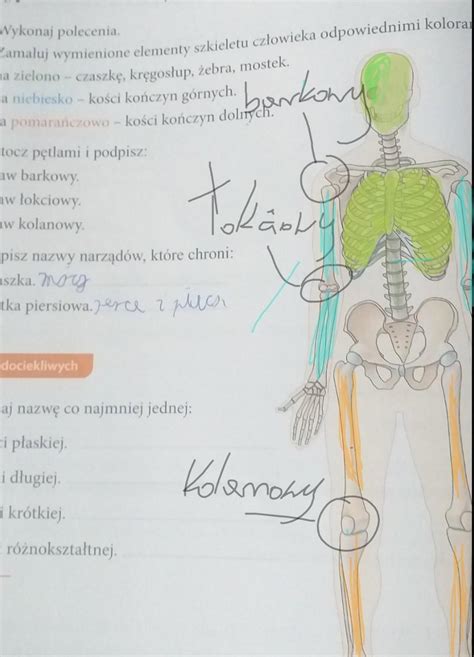 Wykonaj polecenia.
Zamaluj wymienione elementy szkieletu człowieka odpowiednimi kolora
na zielono – czaszkę, kręgosłup, żebra, mostek.
a niebiesko – kości kończyn górnych.
a pomarańczowo – kości kończyn dolnych.
barkowy
tocz pętlami i podpisz:
aw barkowy.
aw łokciowy.
aw kolanowy.
pisz nazwy narządów, które chroni:
aszka. mózg
tka piersiowa. serce i płuca
dociekliwych
aj nazwę co najmniej jednej:
ci płaskiej.
i długiej.
Kolanowy
i krótkiej.
różnokształtnej.